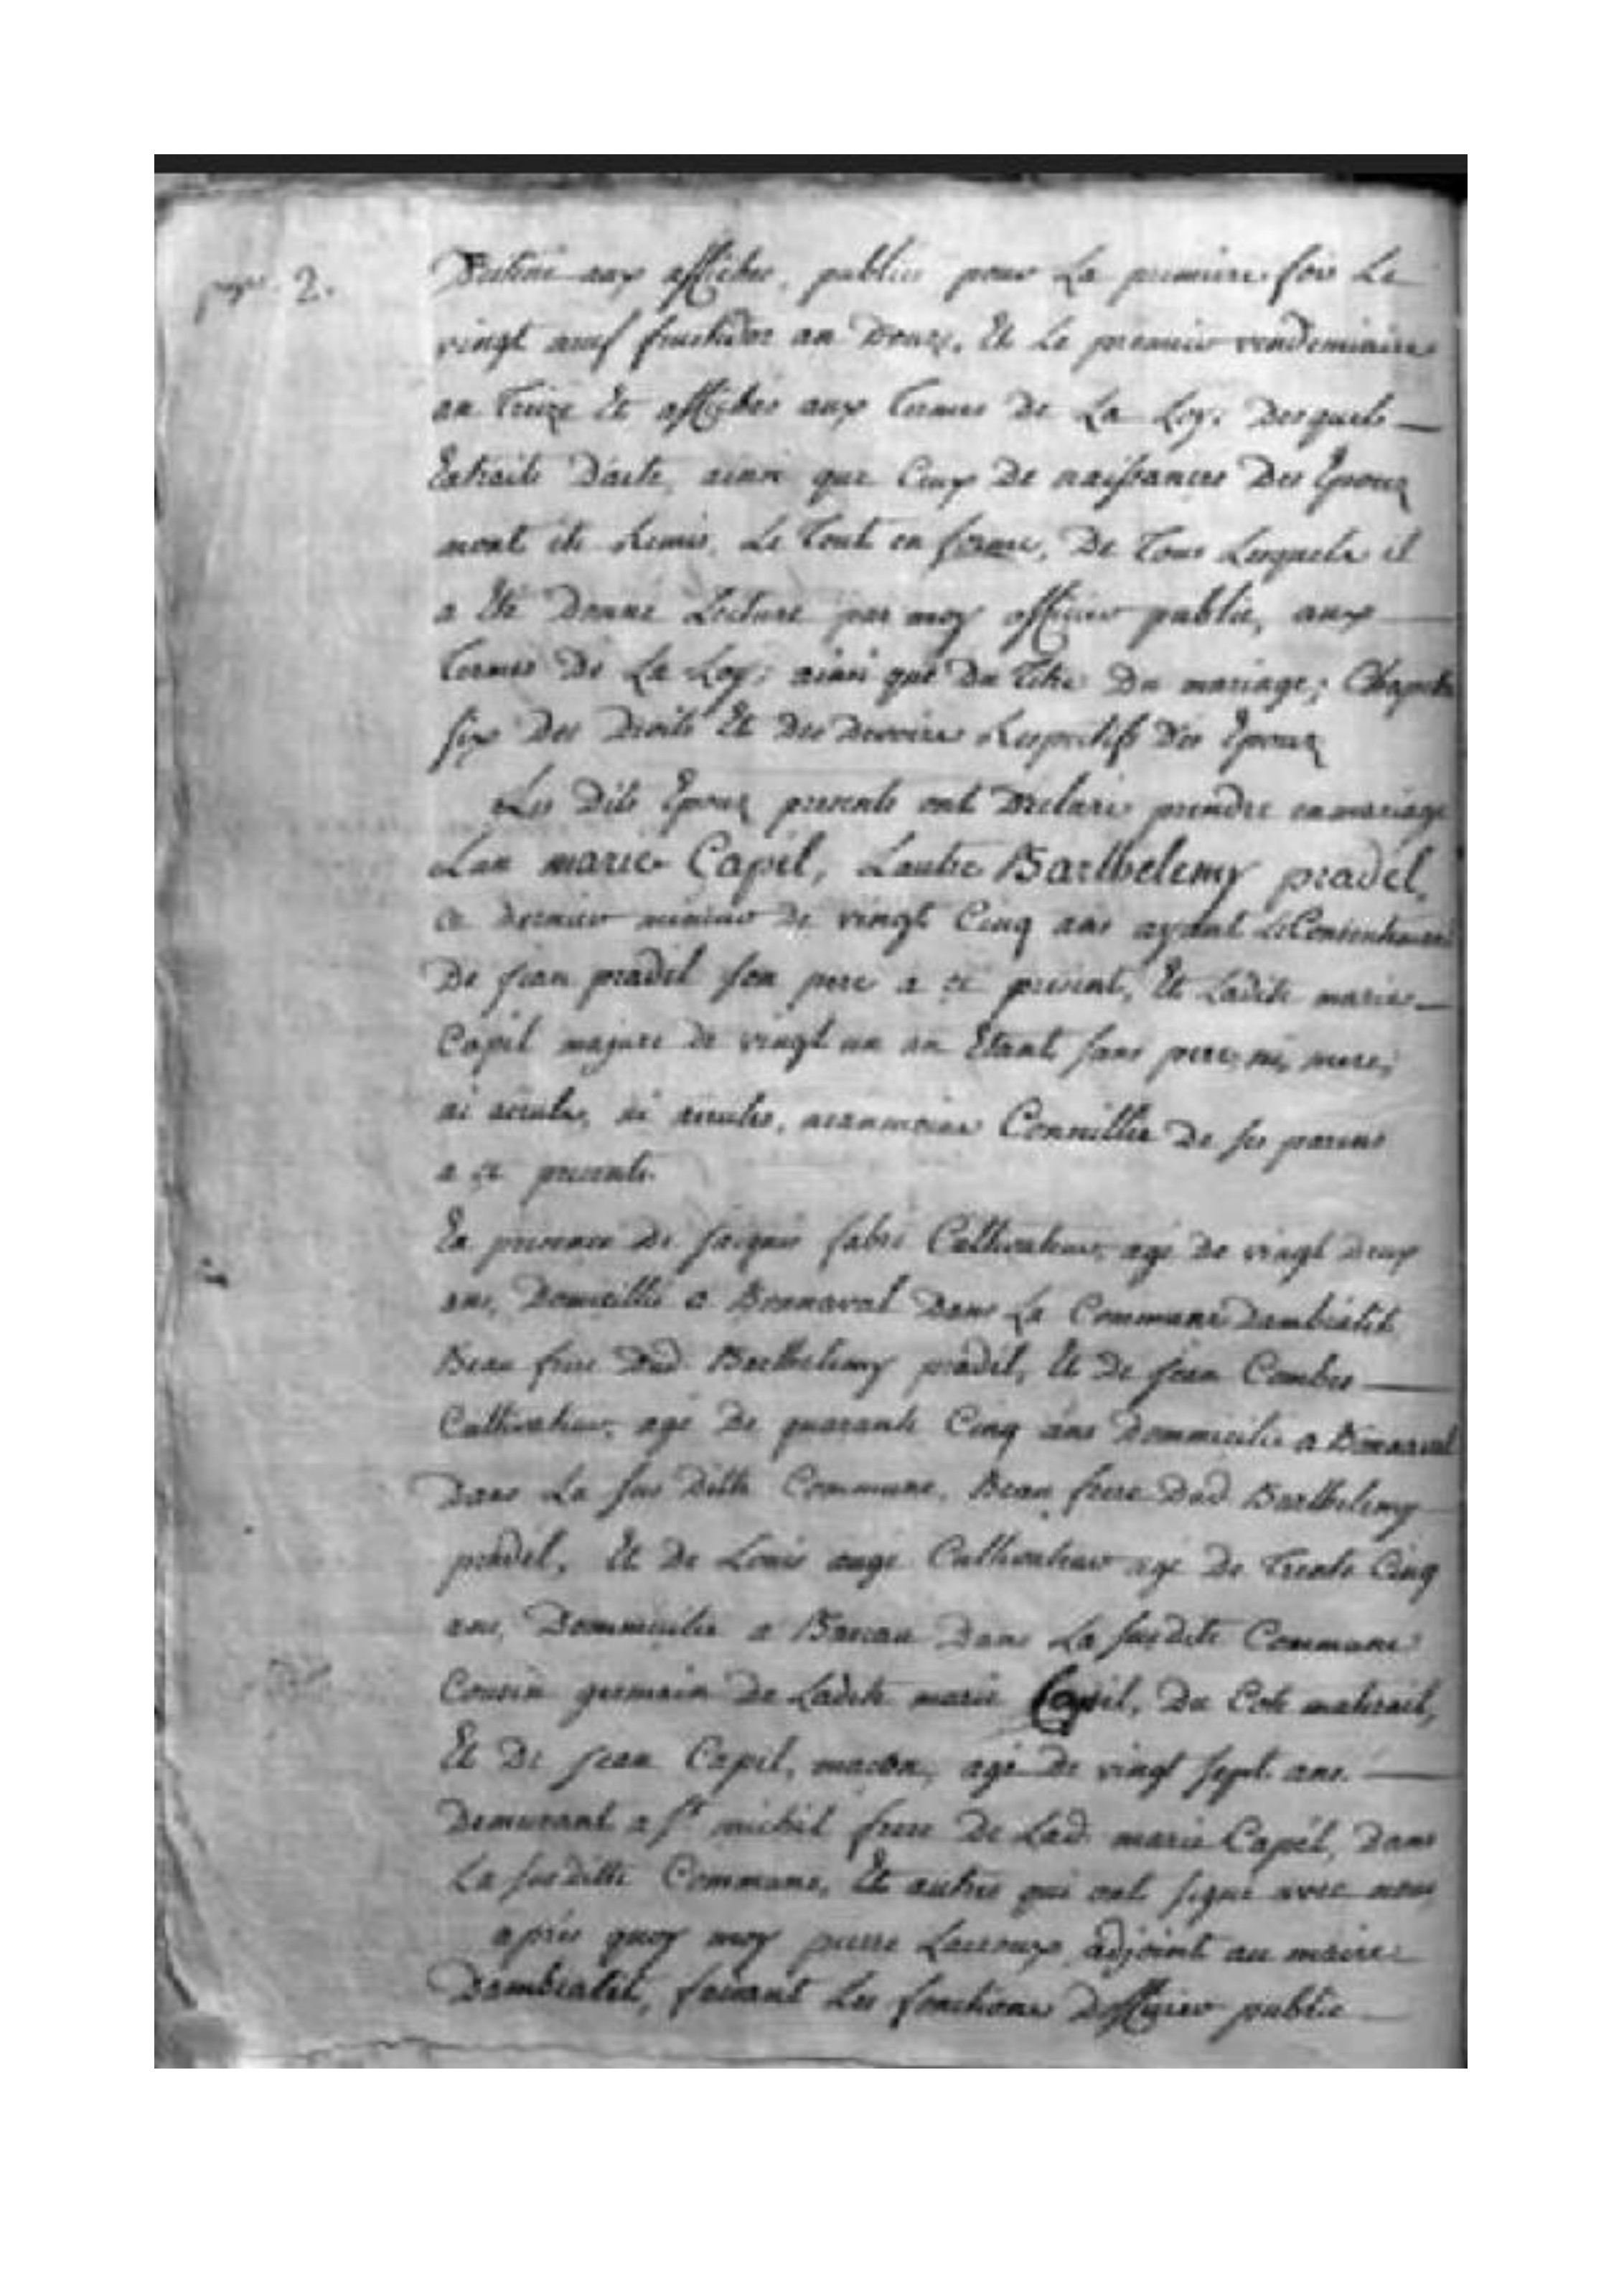 page 2.
Destiné aux affiches, publiés pour La premiere fois Le
vingt neuf fructidor an Douze, Et Le premier vendemiaire
an treize Et affiches aux termes De La Loy; Desquels
Extraits D'acte, ainsi que Ceux De naissances Des Epoux
mont ete Remis, Le tout en forme, De tous Lesquels il
a Eté Donné Lecture par moy officier public, aux
termes De La Loy; ainsi que Du titre Du mariage; Chapitre
six Des Droits Et Des Devoirs Respectifs Des Epoux
Les Dits Epoux presents ont Declare prendre en mariage
Lun marie Capél, Lautre Barthelemy pradél,
ce dernier mineur de vingt Cinq ans ayant Le Consentement
De jean pradél son pere a ce present, Et Ladite marie
Capél majure de vingt un an Etant sans pere, ni, mere,
ni, ni, neanmoins Conseillée De ses parens
a ce presents.
En presence de jacques fabré Cultivateur, agé de vingt Deux
ans, Domicillié a Bonnaval Dans La Commune Dambialét
Beau frere Dud. Barthelemy pradél, Et De jean Combes
Cultivateur, agé De quarante Cinq ans Dommicilié a Bonnaval
Dans La sus Ditte Commune, Beau frere Dud Barthelemy
pradél, Et De Louis augé Cultivateur agé De trente Cinq
ans, Dommicilié a Dans La susdite Commune
Cousin germain De Ladite marie Capél, Du Coté maternél,
Et De jean Capél, macon, agé de vingt sept ans.
Demurant a St michél frere De Lad. marie Capél, Dans
La susditte Commune, Et autres qui ont signé avec nous
après quoy moy pierre Lacroux, adjoint au maire
Dambialét, faisant Les fonctions D'officier public